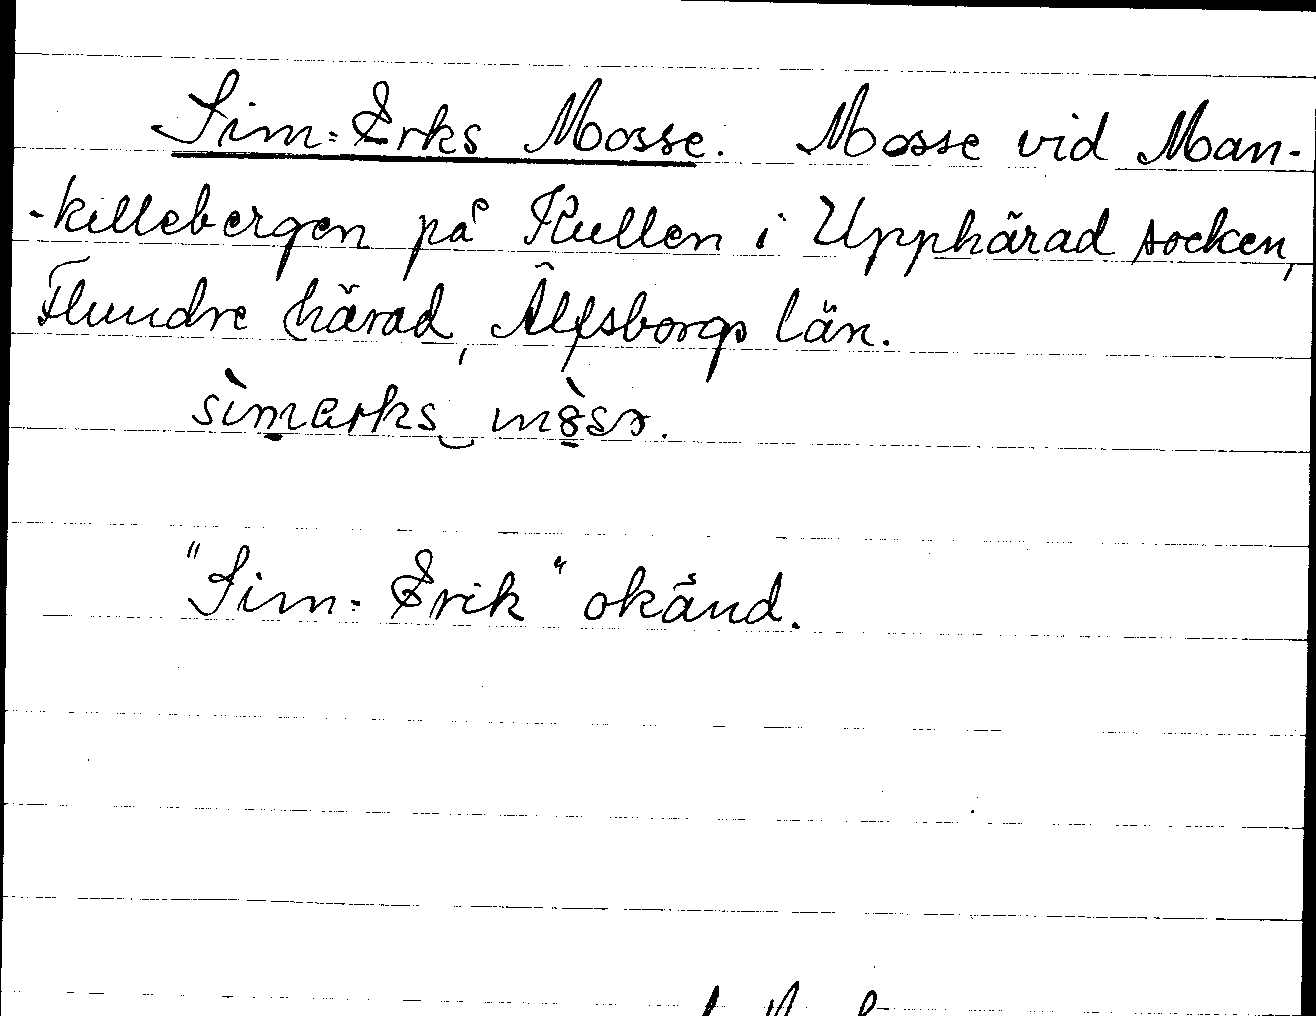 Sim-Erks Mosse. Mosse vid Man-
-killebergen på Kullen i Upphärad socken,
Flundre härad, Älfsborgs län.
sìmarks mòsə.
"Sim-Erik" okänd.